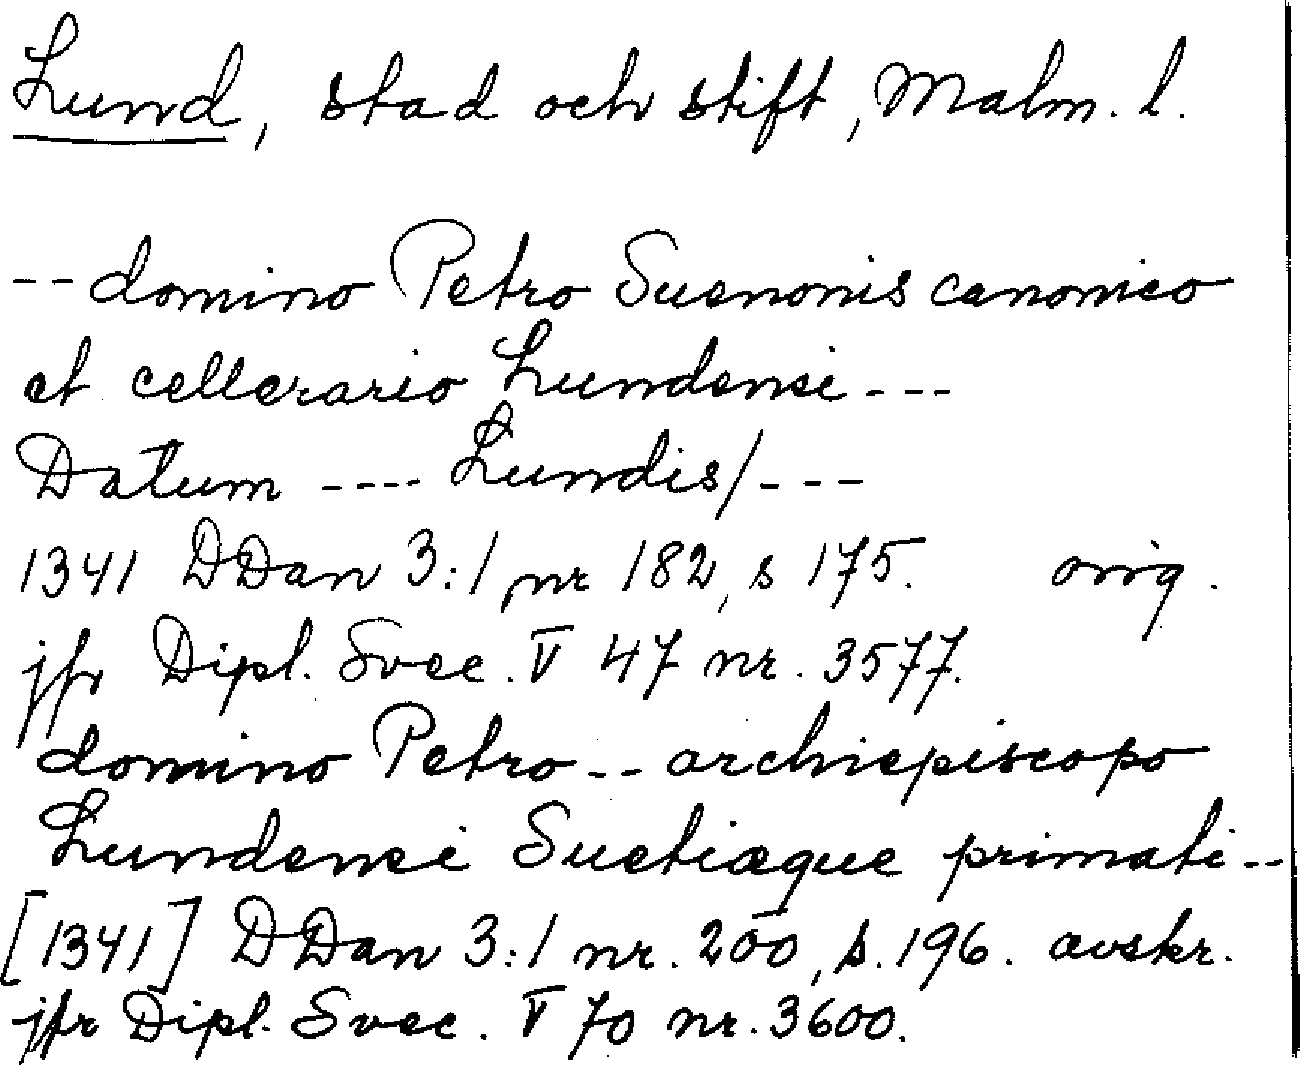 Lund, stad och stift, Malm. l.
-- domino Petro Suenonis canonico
et cellerario Lundensi ---
Datum ---- Lundis/---
1341 DDan 3:1 nr 182, s 175. orig.
jfr Dipl. Svec. V 47 nr. 3577.
domino Petro -- archiepiscopo
Lundensi Suetiæque primati --
[1341] DDan 3:1 nr. 200, s. 196. avskr.
jfr Dipl. Svec. V 70 nr. 3600.